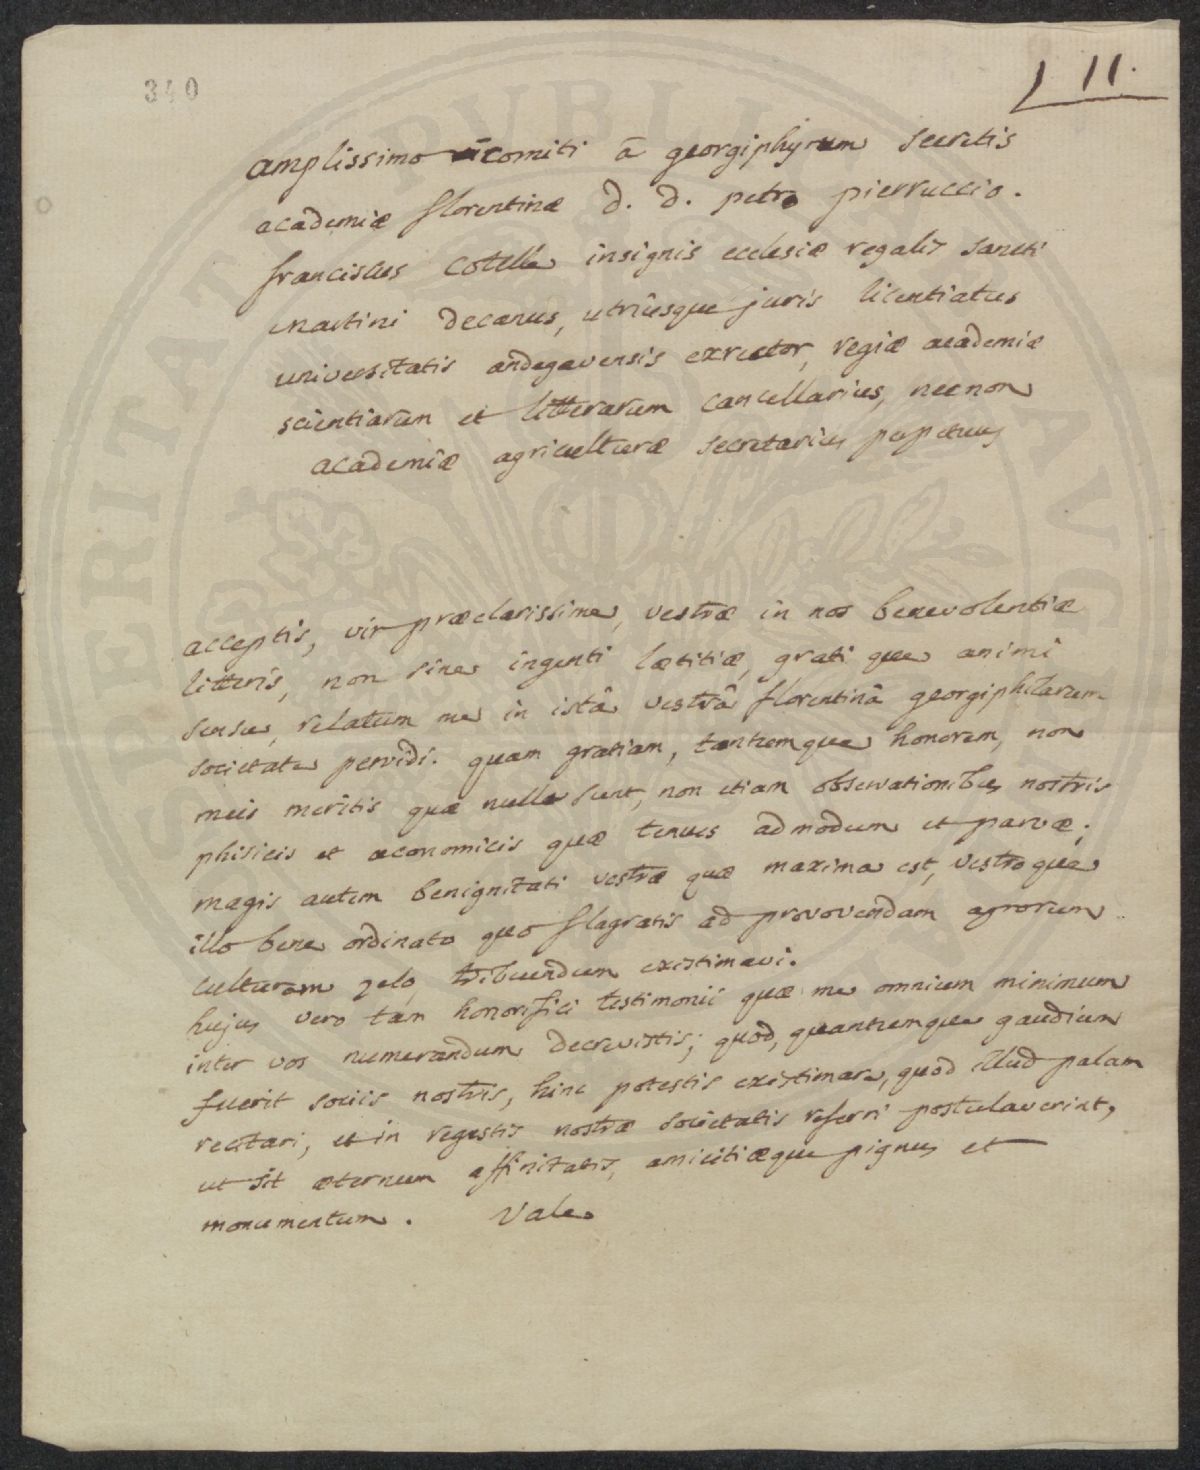 340
L 11.
amplissimo vicomiti â georgiphyrum secretis
academiæ florentinæ d. d. petro pierruccio.
franciscus Cotelle insignis ecclesiæ regalis sancti
martini decanus, utriusque juris licentiatus
universitatis andegavensis exrector, regiæ academiæ
scientiarum et litterarum cancellarius, necnon
academiæ agriculturæ secretarius perpetuus
acceptis, vir præclarissime, vestræ in nos benevolentiæ
litteris, non sine ingenti lætitiæ, gratique animi
sensu, relatum me in istâ vestrâ florentinâ georgiphilarum
societate pervidi. quam gratiam, tantumque honorem, non
meis meritis quæ nulla sunt, non etiam observationibus nostris
phisicis et œconomicis quæ tenues admodum et parvæ;
magis autem benignitati vestræ quæ maxima est, vestroque
illo bene ordinato quo flagratis ad provovendam agrorum
culturam zelo, tribuendum existimavi.
hujus vero tam honorifici testimonii quæ me omnium minimum
inter vos numerandum decrevistis; quod, quantumque gaudium
fuerit sociis nostris, hinc potestis existimare, quod illud palam
recitari, et in regestis nostræ societatis referri postulaverint,
ut sit æternum affinitatis, amicitiæque pignus et
monumentum. Vale